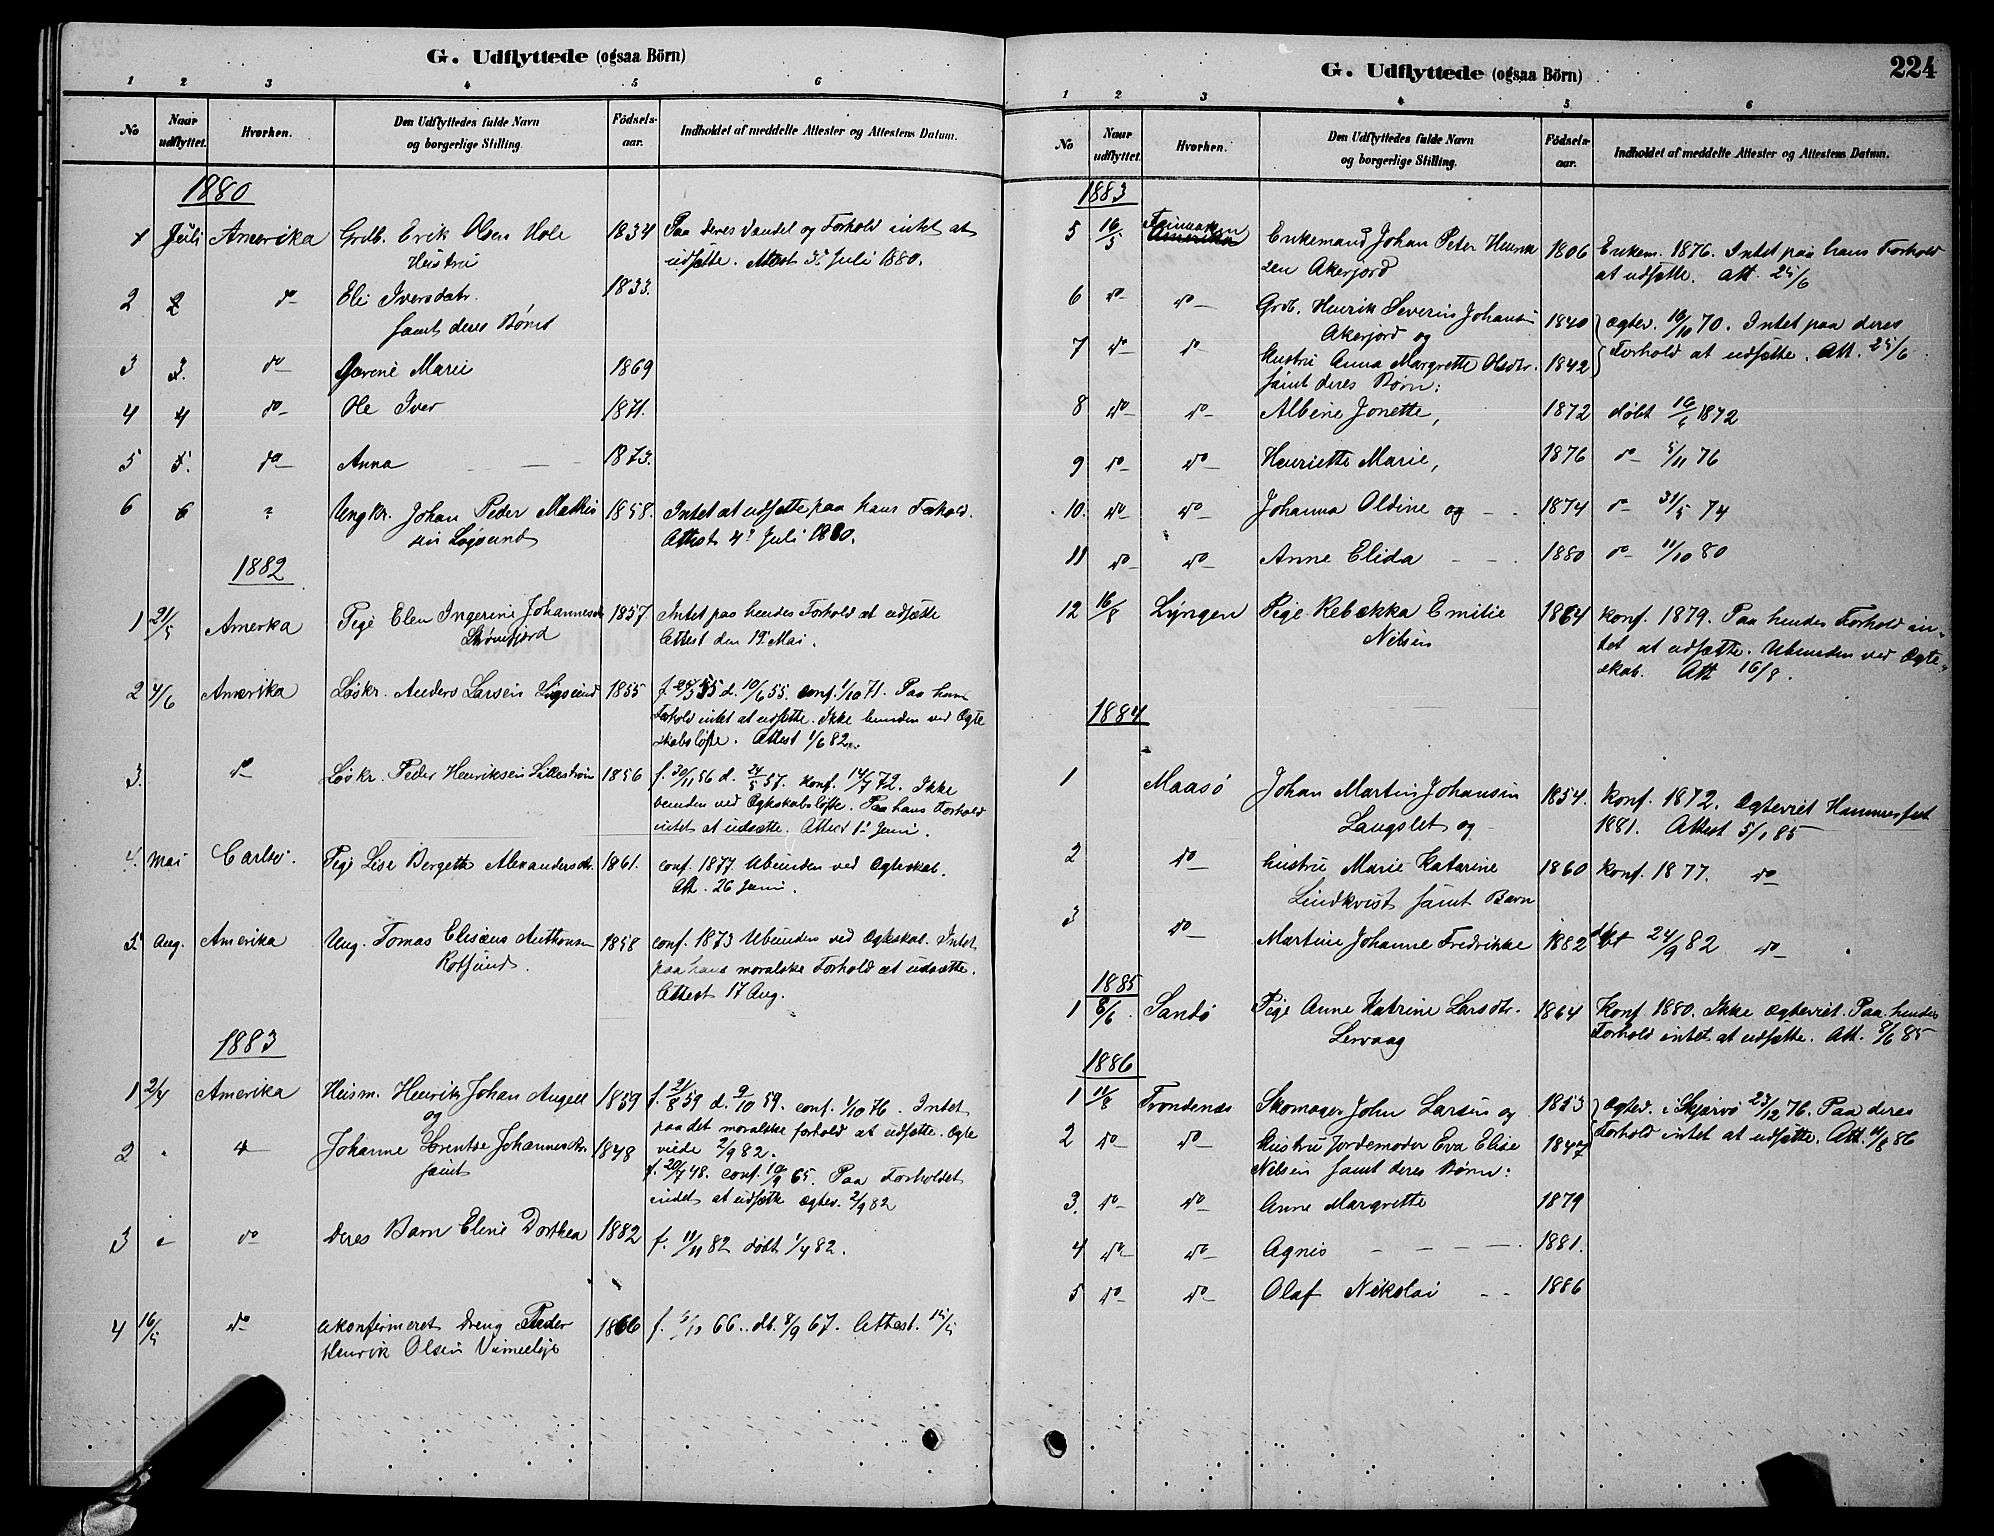 G. Udflyttede (ogsaa Börn)
1 2 3 4 5 6
No Naar udflyttet. Hvorhen. Den Udflyttedes fulde Navn og borgerlige Stilling. Födsels-aar. Indholdet af meddelte Attester og Attestens Datum.
1880
1 Juli Amerika Grdb. Erik Olsen Hole 1834 Paa deres Vandel og Forhold intet at
Hustru udsætte. Attest Juli 1880.
2 2 do Eli Iversdatr. 1833.
samt deres Børn
3 3. do Marie 1869
4 4 do Ole Iver 1871.
5 5. do Anna 1873.
6 6 Ungkr. Johan Peder Mathi 1858. Intet at udsætte paa hans Forhold.
sen Attest 4 Juli 1880.
1882
1 21/5 Amerka Pige Elen Ingerine Johannes 1857. Intet paa hendes Forhold at udsætte
Attest den 19 Mai.
2 4/6 Amerika Løskr. Anders Larsen 1855 f. 55 d. 10/6 55. conf. 1/10 71. Paa hans
Forhold intet at udsætte. Ikke bunden ved Ægte
skabsløfte. Attest 1/6 82.
3. do Løskr. Peder Henriksen 1856 f. 30/11 56 d. 24/5 57. konf. 14/7 72. Ikke
bunden ved Ægteskabsløfte. Paa hans Forhold
intet at udsætte. Attest 1 Juni.
4. Mai Carlsø. Pige Lise Bergette Alexandersdtr. 1861. conf. 1877. Ubunden ved Ægteskab.
Att. 26 Juni.
5. Aug. Amerika Ung. Tomas Elisæus Anthonsen 1858 conf. 1873 Ubunden ved Ægteskab. Intet
Rotsund. paa hans moralske Forhold at udsætte.
Attest 17 Aug.
1883
1 2/4 Amerika Husm. Henrik Johan Angell 1859 f. 21/8 59 d. 9/10 59. conf. 1/10 76. Intet
og paa det moralske forhold at udsætte. Ægte
viede 2/9 82.
2 do Johanne Lorentse Johannesdtr. 1848 f. 20/7 48. conf. 10/9 65. Paa Forholdet
samt intet at udsætte Ægtev. 2/9 82
3 do deres Barn Eline Dorthea 1882 f. 11/11 82 døbt 1/4 82.
4 16/5 do ukonfirmeret Dreng Peder 1866 f. 66. db. 8/9 67. Attest. 15/5
Henrik Olsen
G. Udflyttede (ogsaa Börn) 224
1 2 3 4 5 6
No Naar udflyttet. Hvorhen. Den Udflyttedes fulde Navn og borgerlige Stilling. Födsels-aar. Indholdet af meddelte Attester og Attestens Datum.
1883
5 16/5 Finmarken Amerika Enkemand Johan Peter Henrik 1806 Enkem. 1876. Intet paa hans Forhold
sen Akerjord at udsætte. Att. 25/6
6 do do Grdb. Henrik Severin Johansen 1840 Ægtev. 16/10 70. Intet paa deres
Akerjord og
7 do do Hustru Anna Margrette Olsdtr. 1842 Forhold at udsætte. Att. 25/6
samt deres Børn:
8 do do Albine Jonette, 1872 døbt 16/6 1872
9 do do Henriette Marie, 1876 do 5/11 76
10. do do Johanna Oldine og 1874 do 31/5 74
11 do do Anne Elida 1880 do 11/10 80
12 16/8 Lyngen Pige Rebækka Emilie 1864 konf. 1879. Paa hendes Forhold in-
Nilsen tet at udsætte. Ubunden ved Ægte-
skab. Att 16/8.
1884
1 Maasø Johan Martin Johansen 1854. konf. 1872. Ægteviet Hammerfest
Langslet og 1881. Attest 5/1 85
2 do hustru Marie Katarine 1860 konf. 1877. do
Lindkvist samt Barn
3 do Martine Johanne Fredrikke 1882 døbt 24/9 82 do
1885
1 8/6 Sandø Pige Anne Katrine Larsdtr. 1864 Konf. 1880. Ikke Ægteviet. Paa hendes
Lervaag Forhold intet at udsætte. Att. 8/6 85
1886
1 11/8 Trondenæs Skomager John Larsen og 1853 Ægtev. i Skjærvø 23/12 76. Paa deres
2 do do Hustru Jordemoder Eva Elise 1847 Forhold intet at udsætte. Att. 11/8 86
Nilsen samt deres Børn:
3. do do Anne Margrette 1879
4 do do Agnes 1881.
5 do do Olaf Nikolai 1886